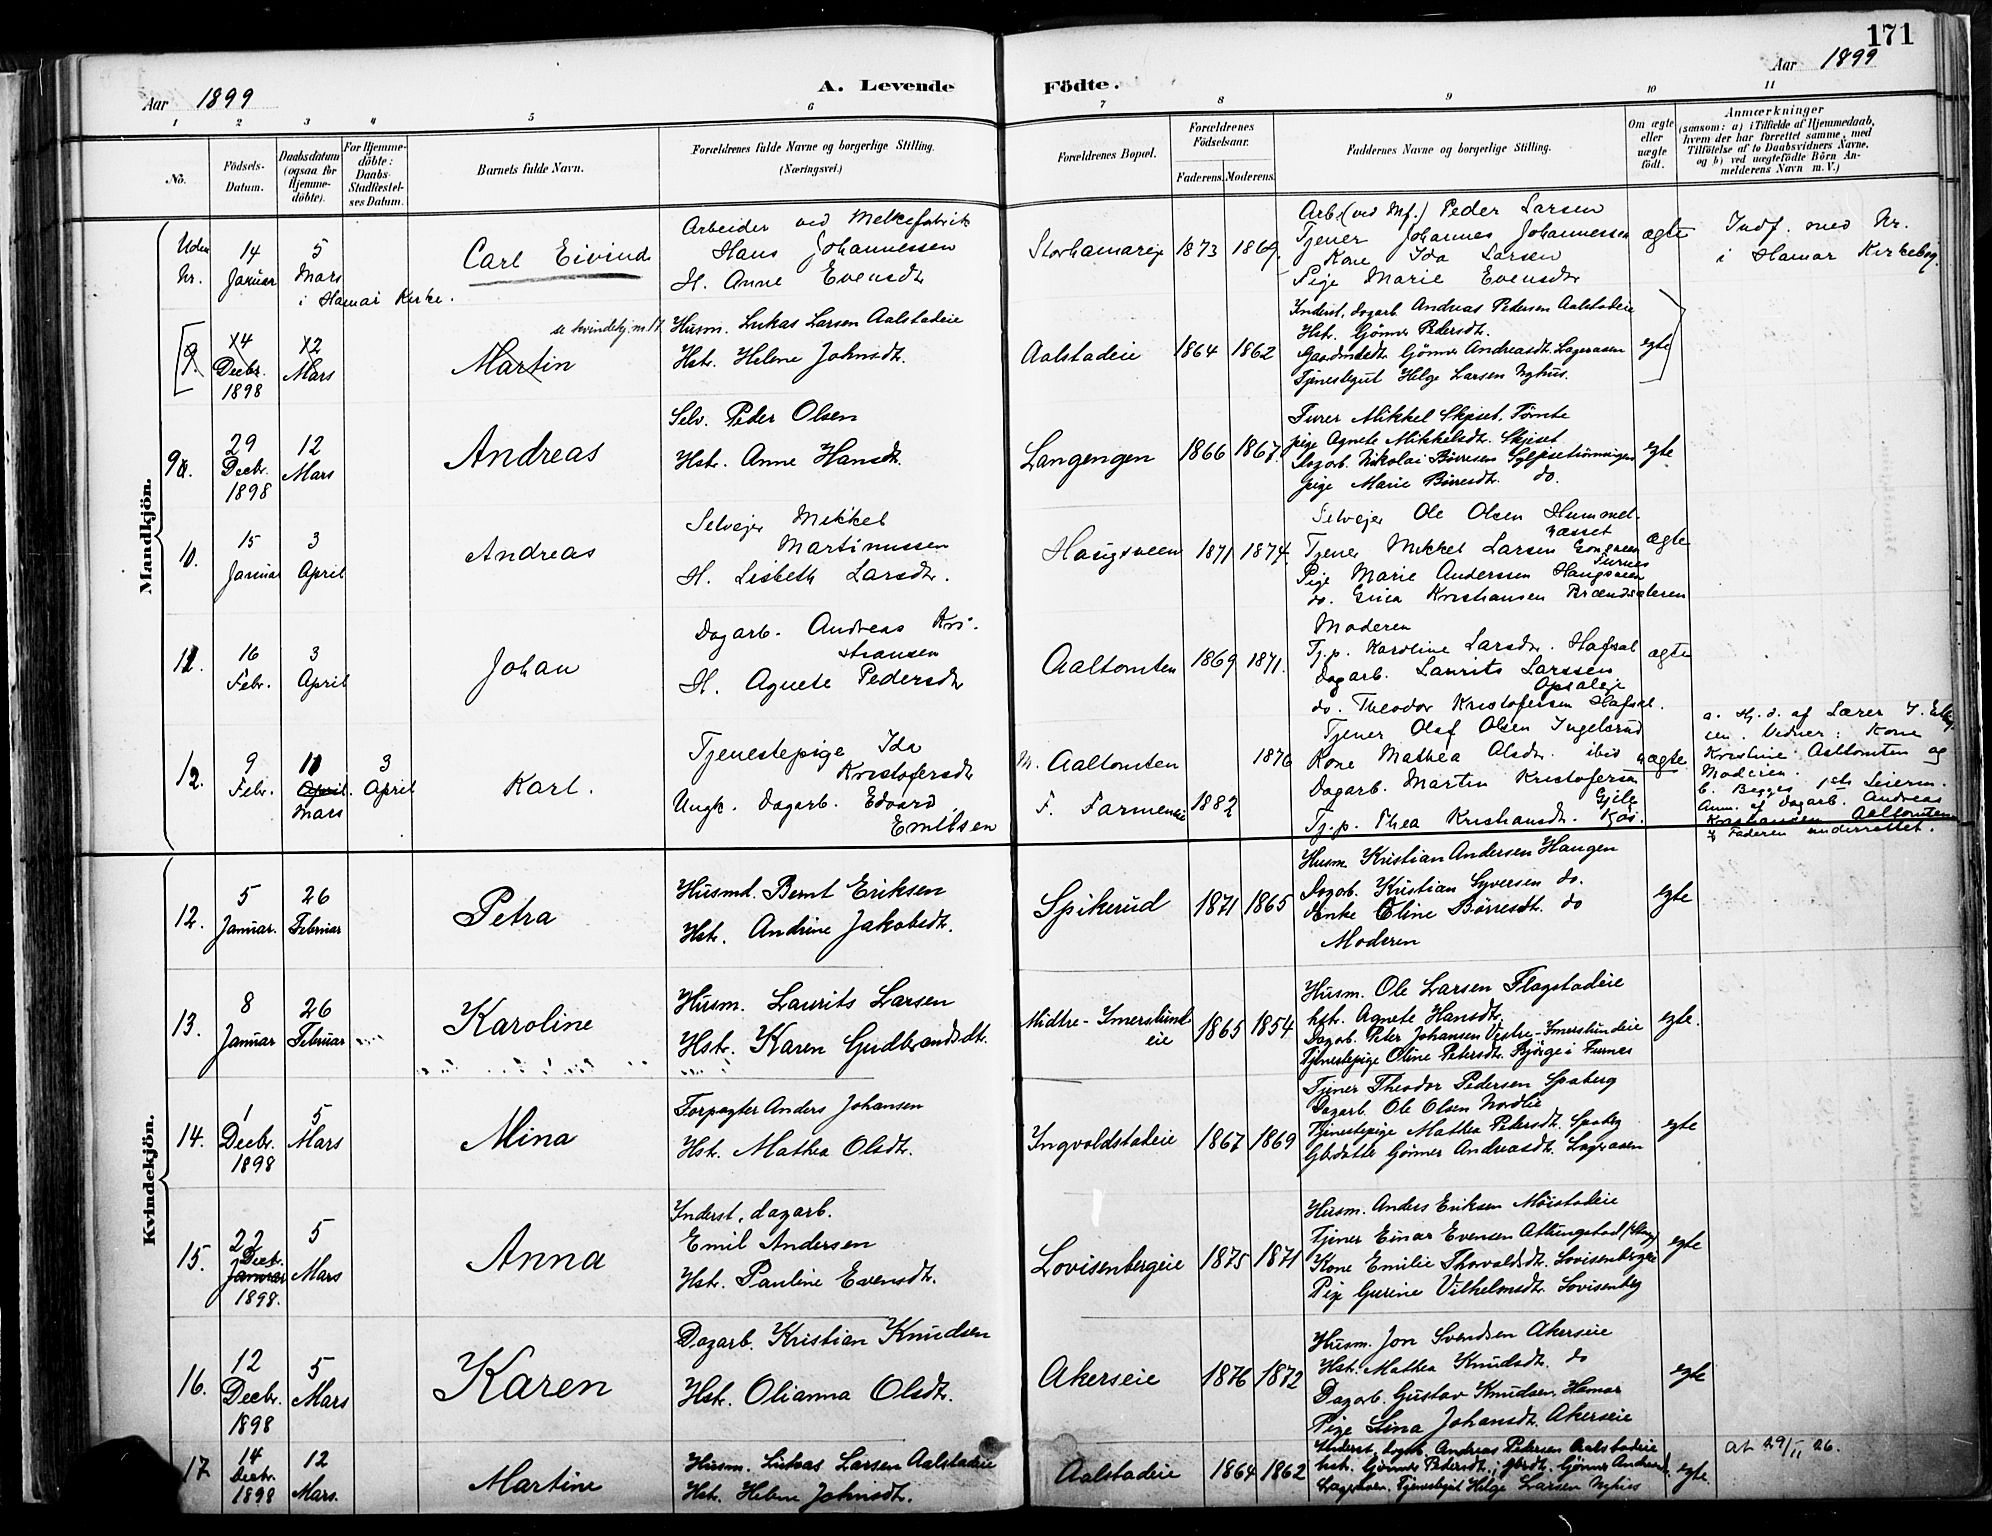 171
Aar 1899
A. Levende Födte.
Aar 1899
1 2 3 4 5 6 7 8 9 10 11
No.
Födsels-Datum.
Daabsdatum (ogsaa for Hjemme-döbte).
For Hjemme-döbte: Daabs-Stadfæstel-ses Datum.
Barnets fulde Navn.
Forældrenes fulde Navne og borgerlige Stilling.
(Næringsvei.)
Forældrenes Bopæl.
Forældrenes Födselsaar.
Faderens. Moderens.
Faddernes Navne og borgerlige Stilling.
Om ægte eller uægte födt.
Anmærkninger
(saasom: a) i Tilfælde af Hjemmedaab,
hvem der har forrettet samme, med
Tilföielse af to Daabsvidners Navne.
og b) ved uægtefödte Börn An-
melderens Navn m. V.)
Mandkjön.
Uden Nr.
14 Januar
5 Mars
i Hamar Kirke.
Carl Eivind
Arbeider ved Melkefabrik
Hans Johannessen
H. Anne Evensdt
Storhamareie
1873 1869
Arb. (ved Mf.) Peder Larsen
Tjener Johannes Johannessen
Kone Ida Larsen
Pige Marie Evensdtr
ægte
Indf. med Nr.
i Hamar Kirkebog.
9.
14 Decbr. 1898
12 Mars
se kvindekj. nr 17
Martin
Husm. Lukas Larsen Aalstadeie
Hstr. Helene Johnsdt.
Aalstadeie
1864 1862
Inderst, dagarb Andreas Pedersen Aalstadeie
Hst. Gönner Pedersdt.
Gaardmdt. Gönner Andreasdt. Lageraasen
Tjenestegut Helge Larsen Nyhus.
egte
9
29 Decbr. 1898
12 Mars
Andreas
Selv. Peder Olsen
Hstr. Anne Hansdt.
Langengen
1866 1867
Furer Mikkel Skjeset. Tomte
pige Agnete Mikkelsdt. Skjeset
Dagarb. Nikolai Börresen
pige Marie Börresdt. do.
egte
10.
15 Januar
3 April
Andreas
Selvejer Mikkel
Martinussen
H. Lisbeth Larsdtr.
Haugsveen
1871 1874
Selvejer Ole Olsen Hummel-
næsset
Tjener Mikkel Larsen
Furnes
Pige Marie Andersen Haugsveen
do. Kristiansen
ægte
11.
16 Febr.
3 April
Johan
Dagarb. Andreas Kri-
stiansen
H. Agnete Pedersdtr
Aaltomten
1869 1871.
Moderen
Tj.p. Karoline Larsdtr. Hafsal
Dagarb. Laurits Larssen
Opsaleje
do. Theodor Kristofersen Hafsal.
ægte
12.
9 Febr.
11 April. Mars
3 April
Karl.
Tjenestepige Ida
Kristofersdtr
Ungk. dagarb. Edvard
Emilsen
M. Aaltomten
F. Farmeneie
1882 1876
Tjener Olaf Olsen Ingelsrud
Kone Mathea Olsdtr. ibid
Dagarb. Martin Kristofersen
Gjile
Tj.p. Thea Kristiansdt.
uægte
a. Hj. d. af Lærer J.
Vidner: Kone
Kristine Aaltomten og
Moderen.
b. Begges 1ste Leierm.
Anm. af Dagarb. Andreas
Kristiansen Aaltomten
Faderen underrettet.
Kvindekjön.
12.
5 Januar.
26 Februar
Petra
Husmd. Bernt Eriksen
Hstr. Andrine Jakobsdt.
Spikerud
1871 1865
Husm Kristian Andersen Haugen
Dagarb. Kristian Syversen do.
Enke Eline Börresdt. do
Moderen
egte
13.
8 Januar
26 Februar
Karoline
Husm. Laurits Larsen
Hstr. Karen Gudbrandsdt.
Midtre-Imerslund
eie
1865 1854
Husm. Ole Larsen Flagstadeie
hst. Agnete Hansdtr.
Dagarb. Peter Johansen Vestre-Imerslundeie
Tjenestepige Oline Petersdtr. Bjørge i Furnes
egte.
14.
1 Decbr. 1898
5 Mars
Mina
Forpagter Anders Johansen
Hstr. Mathea Olsdt.
Ingvoldstadeie
1867 1869
Tjener Theodor Pedersen Spaberg
Dagarb. Ole Olsen Nordlie
Tjenestepige Mathea Pedersdt. Spaberg
Gbrdatter Gönner Andreasdt. Lageraasen
egte
15.
22 Decbr. Januar 1898.
5 Mars
Anna
Inderst, dagarb.
Emil Andersen
Hstr. Pauline Evensdt.
Lovisenbergeie
1875 1871
Husm. Anders Eriksen Möistadeie
Tjener Einar Evensen
Kone Emilie Thorvaldsdt. Lovisenbergeie
Pige Gurine Vilhelmsdt. Lovisenberg
egte
16.
12 Decbr. 1898
5 Mars
Karen
Dagarb. Kristian Knudsen
Hstr. Olianna Olsdt.
Akerseie
1876 1872
Husm. Jon Svendsen Akerseie
Hst. Mathea Knudsdt. do
Dagarb. Gustav Knudsen. Hamar
Pige Lina Johansdt. Akerseie
egte
17
14 Decbr. 1898
12 Mars.
Martine
Husm. Lukas Larsen Aalstadeie
Hstr. Helene Johnsdt.
Aalstadeie
1864 1862
Inderst, dagarb. Andreas Pedersen Aalstadeie
hst. Gönner Pedersdt., gbrdt. Gönner Andreasdt.
Lageraasen. Tjenestegut Helge Larsen Nyhus
egte.
at 29/II 26.